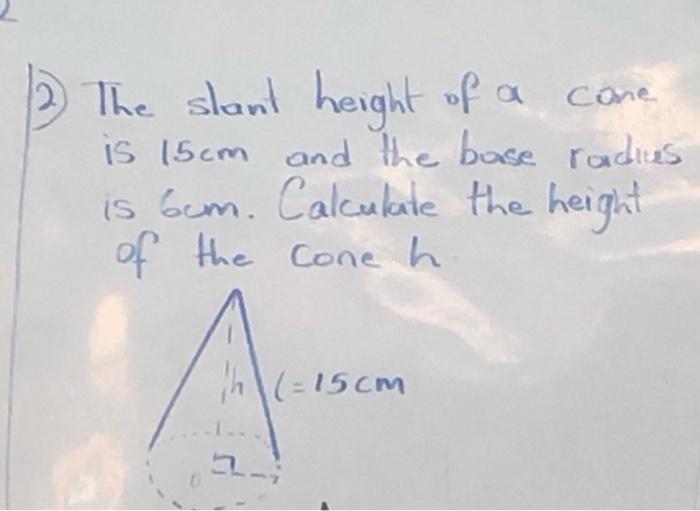 2
2) The slant height of a cone
is 15cm and the base radius
is 6cm. Calculate the height
of the cone h
h l=15cm
0